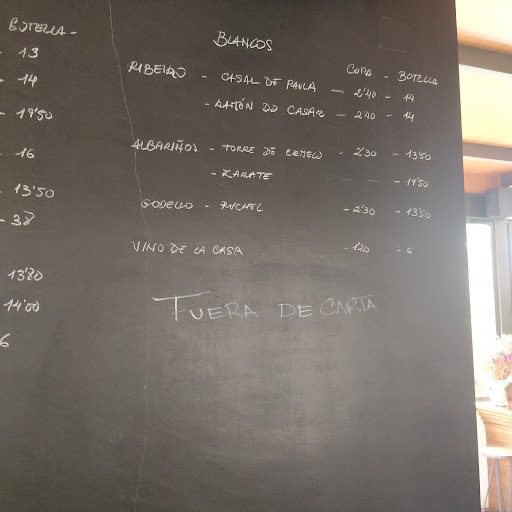 BOTELLA -
- 13
- 14
- 19'50
- 16
- 13'50
- 38
13'80
14'00
6
BLANCOS
COPA - BOTELLA
RIBEIRO - CASAL DE PAULA - 2'40 - 14
- RAMÓN DO CASAR - 2'40 - 14
ALBARIÑOS - TORRE DE - 2'30 - 13'50
- ZARATE - 19'50
GODELLO - - 2'30 - 13'50
VINO DE LA CASA - 1'20 - 6
FUERA DE CARTA